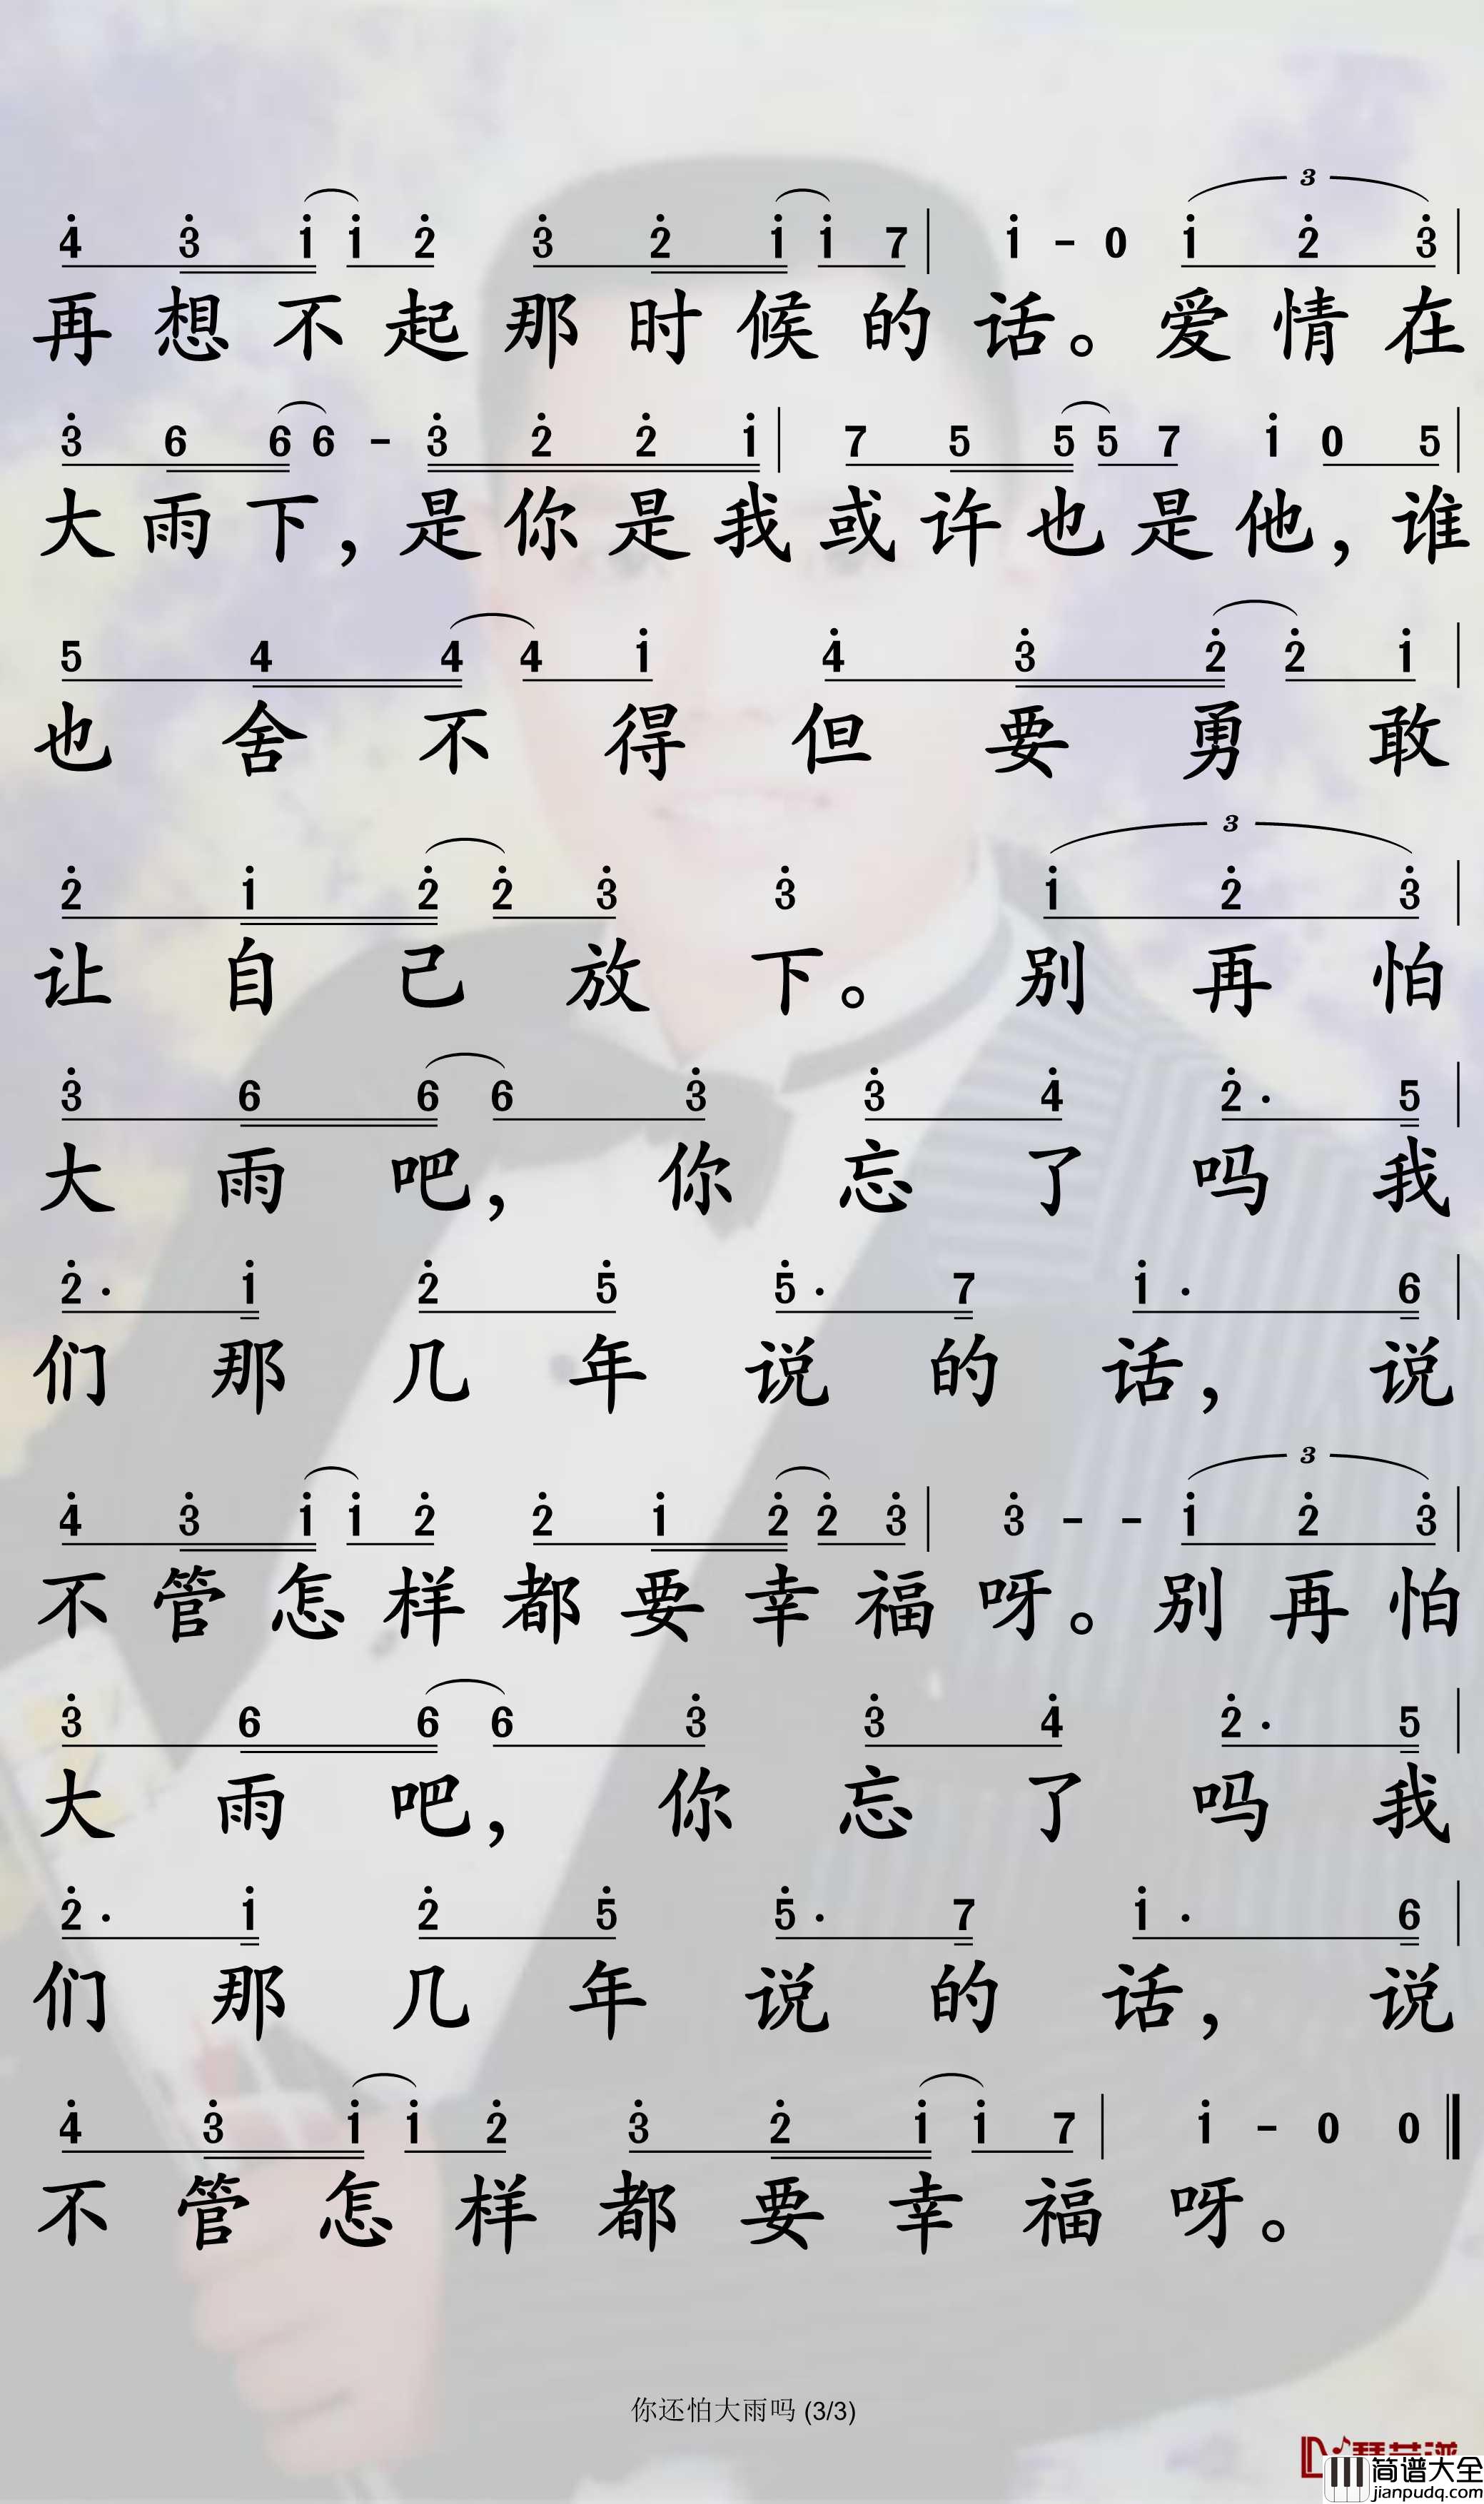 4 3 1 1 2 3 2 1 1 7 | 1 - 0 1 2 3 |
3
再想不起那时候的话。爱情在
3 6 6 6 - 3 2 2 1 | 7 5 5 5 7 1 0 5 |
大雨下，是你是我或许也是他，谁
5 4 4 4 1 4 3 2 2 1 |
也舍不得但要勇敢
2 1 2 2 3 3 1 2 3 |
3
让自己放下。别再怕
3 6 6 6 3 3 4 2· 5 |
大雨吧，你忘了吗我
2· 1 2 5 5· 7 1· 6 |
们那几年说的话，说
4 3 1 1 2 2 1 2 2 3 | 3 - - 1 2 3 |
3
不管怎样都要幸福呀。别再怕
3 6 6 6 3 3 4 2· 5 |
大雨吧，你忘了吗我
2· 1 2 5 5· 7 1· 6 |
们那几年说的话，说
4 3 1 1 2 3 2 1 1 7 | 1 - 0 0
不管怎样都要幸福呀。
你还怕大雨吗 (3/3)
简谱大全
jianpudq.com